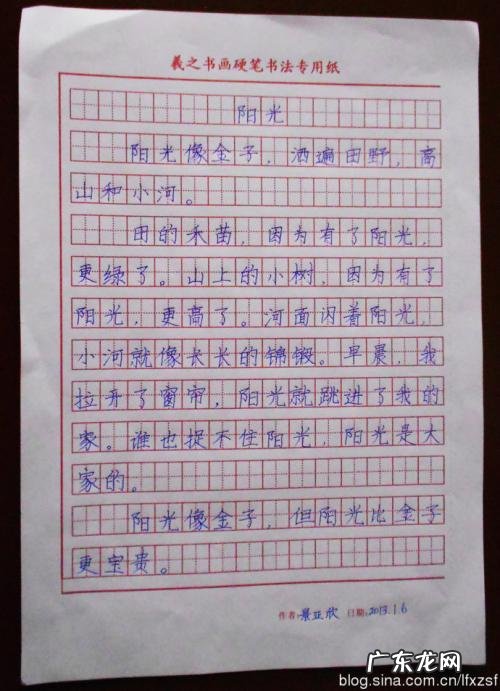 羲之书画硬笔书法专用纸
阳光
阳光像金子，洒遍田野，高
山和小河。
田的禾苗，因为有了阳光，
更绿了。山上的小树，因为有了
阳光，更高了。河面闪着阳光，
小河就像长长的锦锻。早晨，我
拉开了窗帘，阳光就跳进了我的
家。谁也捉不住阳光，阳光是大
家的。
阳光像金子，但阳光比金子
更宝贵。
作者:景亚欣 日期:2013.1.6
广东龙网
blog.sina.com.cn/lfxzsf